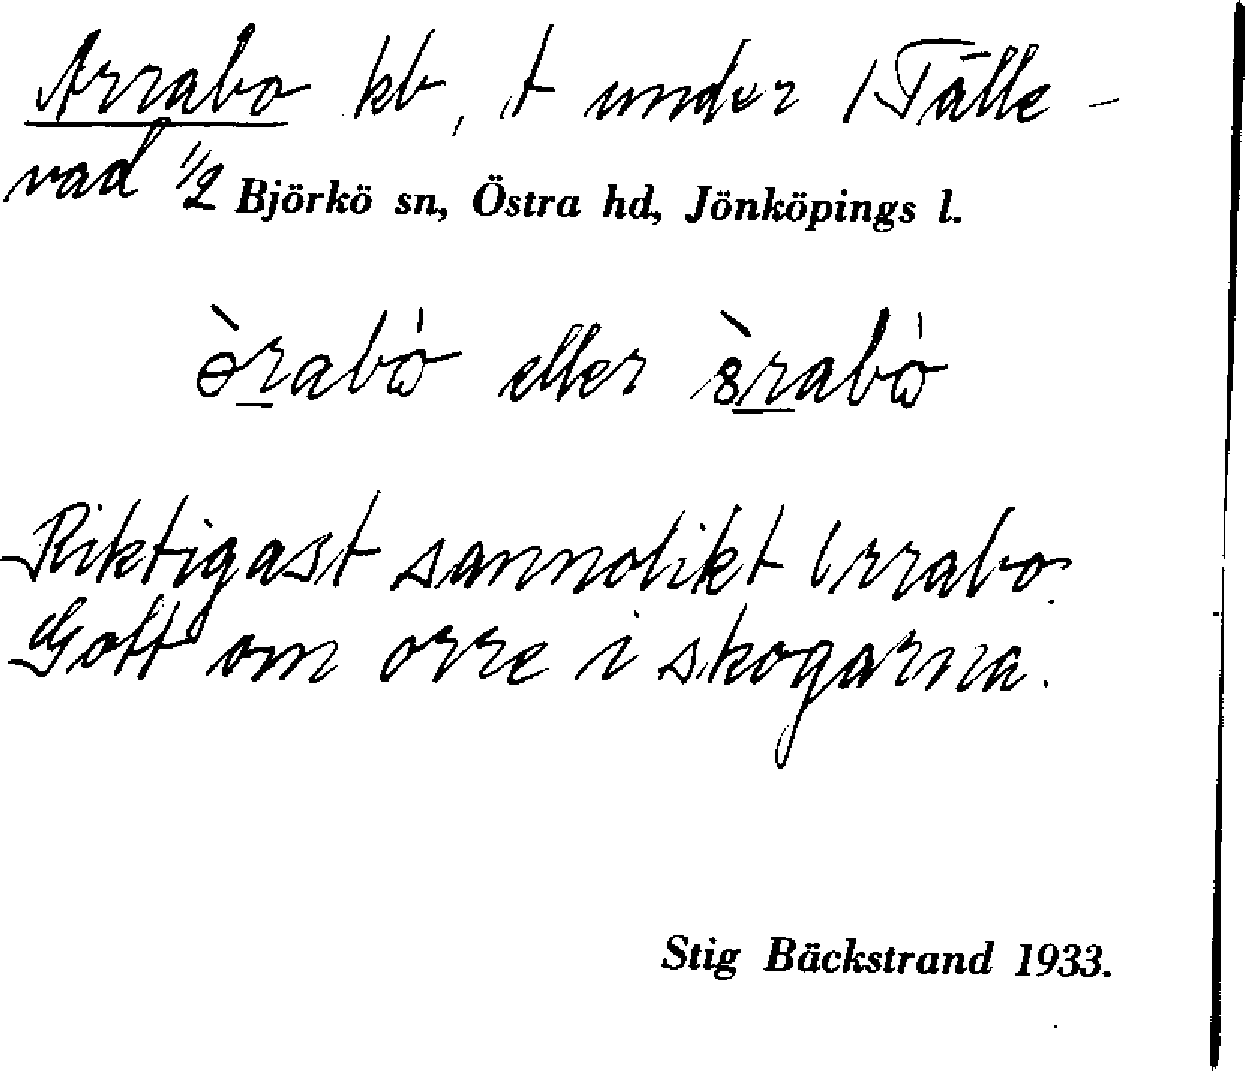 Arrabo kb, t under /Tälle-
vad 1/2 Björkö sn, Östra hd, Jönköpings l.
eller
Riktigast sannolikt Orrabo.
Gott om orre i skogarna.
Stig Bäckstrand 1933.